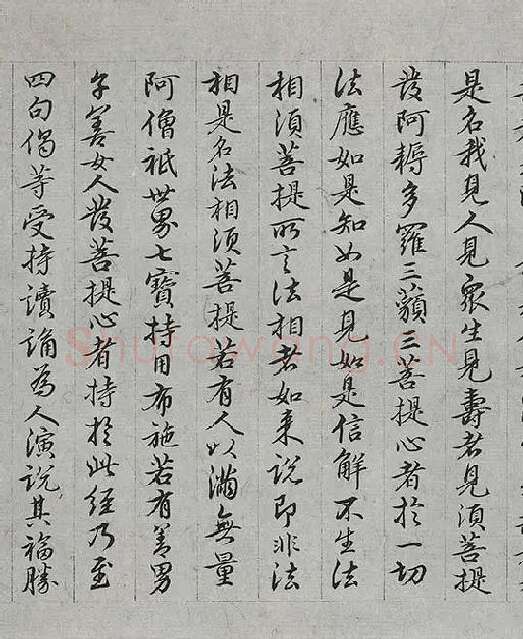 是名我見人見眾生見壽者見須菩提
發阿耨多羅三藐三菩提心者於一切
法應如是知如是見如是信解不生法
相須菩提所言法相者如來說即非法
相是名法相須菩提若有人以滿無量
阿僧祇世界七寶持用布施若有善男
子善女人發菩提心者持於此經乃至
四句偈等受持讀誦為人演說其福勝
Shufawang.CN